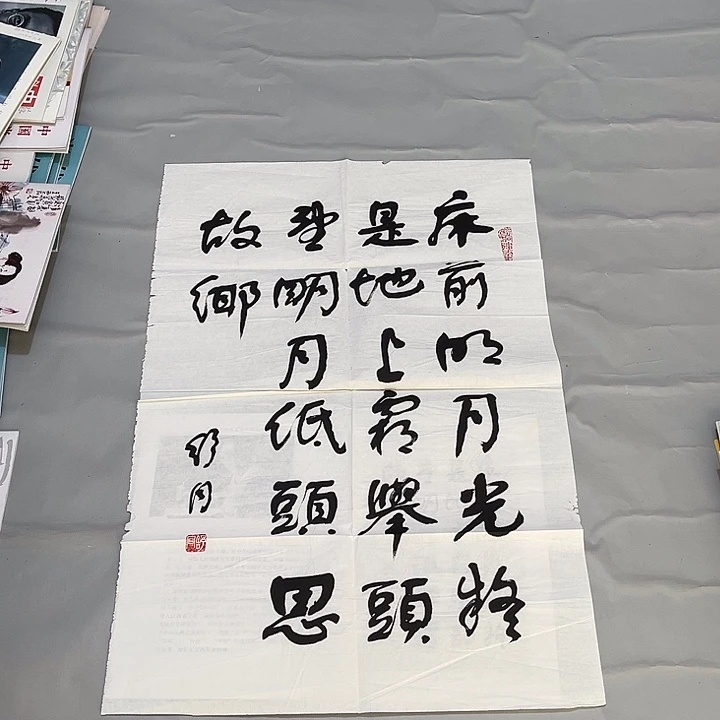 床前明月光疑
是地上霜舉頭
望明月低頭思
故鄉
舒同
中國
中